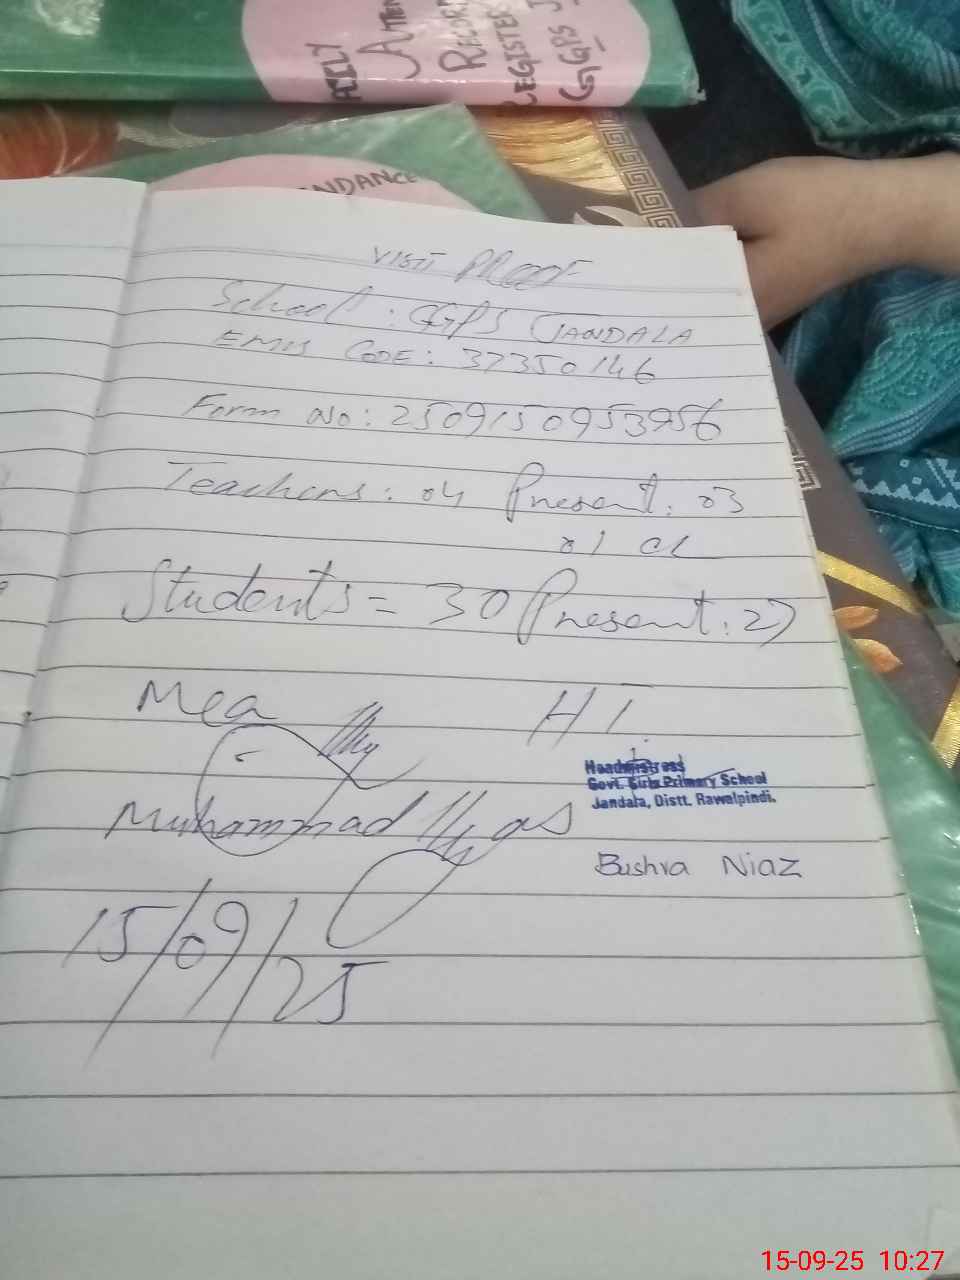 ATTEN
RECORD
REGISTER
GGPS J
NDANCE
VISIT PROOF
School : GGPS JANDALA
EMIS CODE : 37350146
Form No: 2509150953956
Teachers: 04 Present: 03
01 CL
Students = 30 Present: 27
Mea
H T.
Headmistress
Govt. Girls Primary School
Jandala, Distt. Rawalpindi.
Muhammad Ilyas
Bushra Niaz
15/09/25
15-09-25 10:27